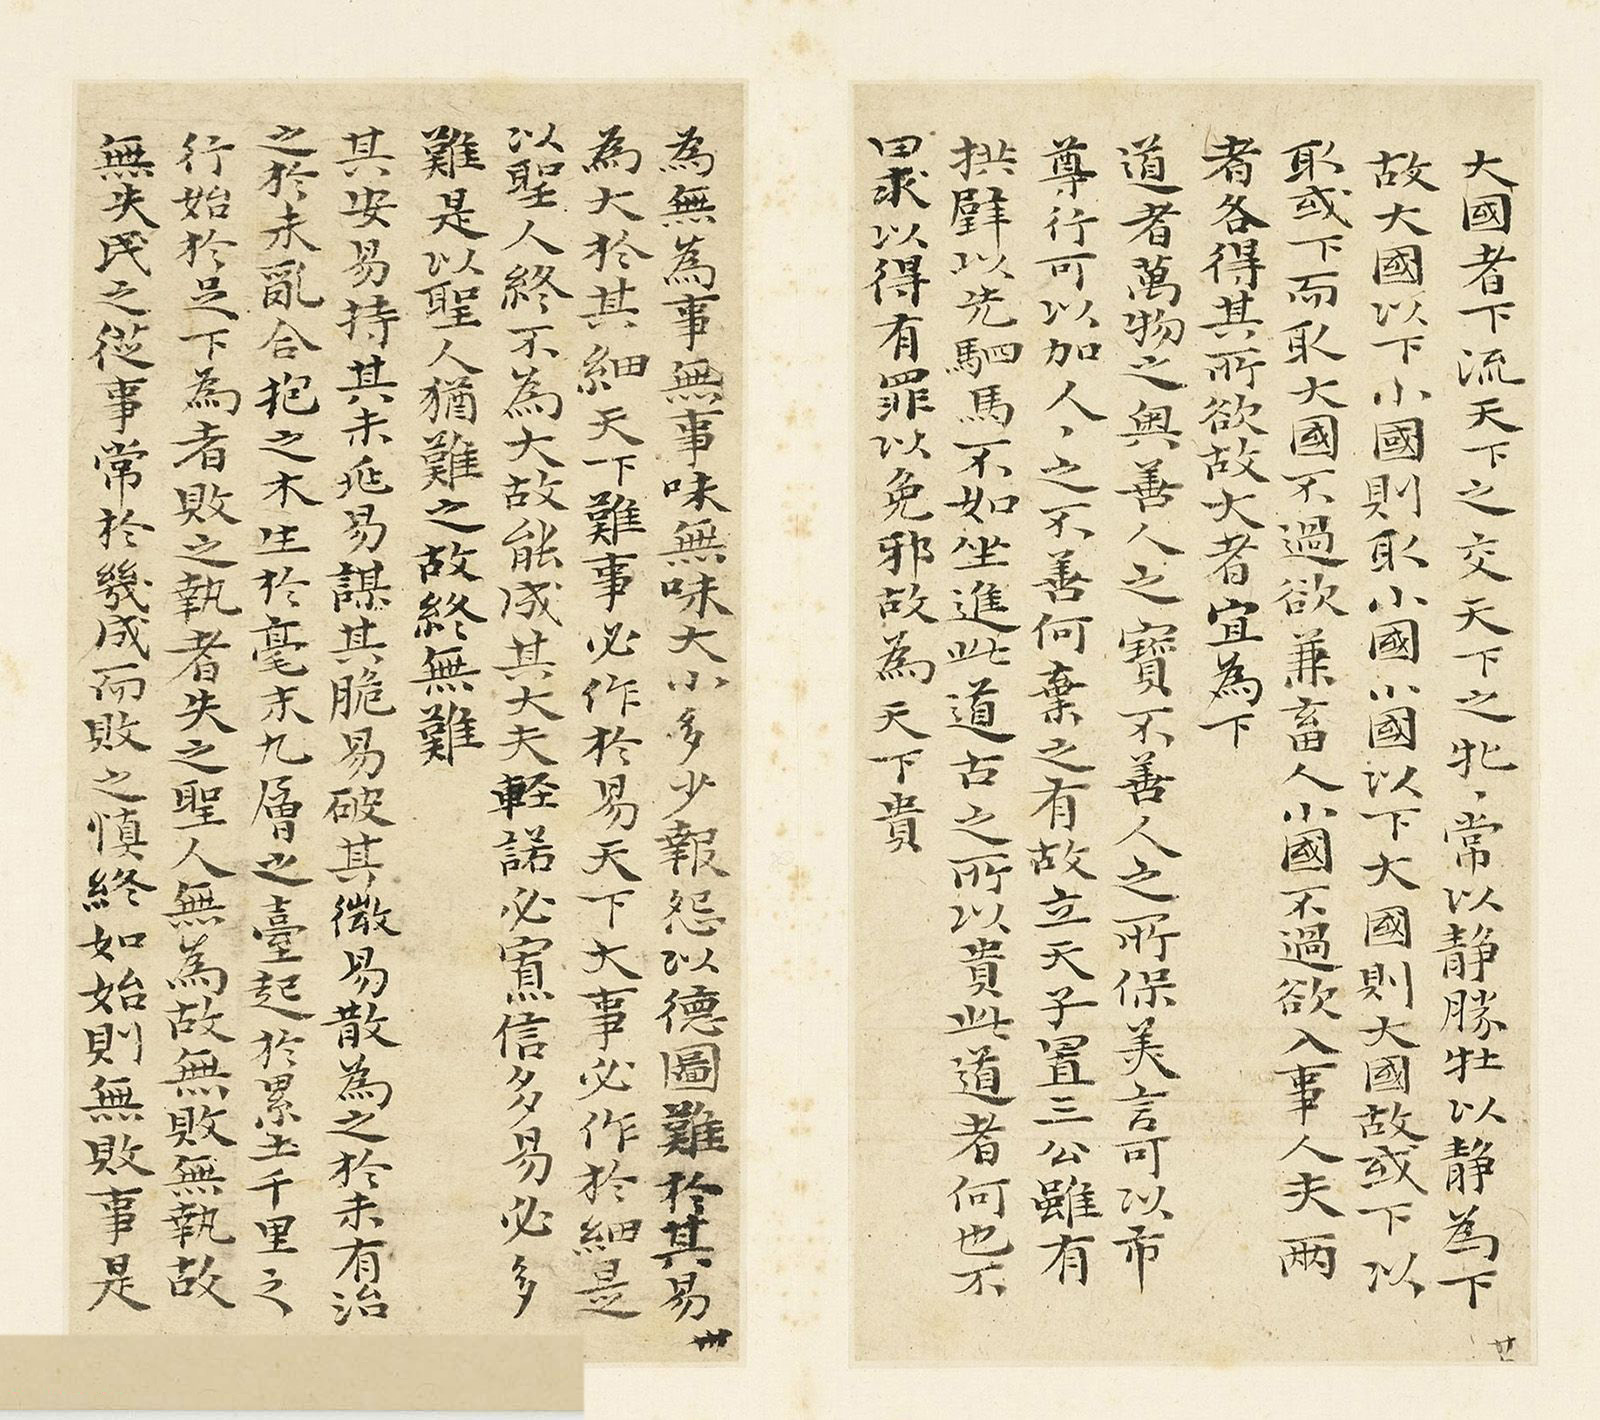 大國者下流天下之交天下之牝〻常以静勝牡以静爲下
故大國以下小國則取小國小國以下大國則大國故或下以
取或下而取大國不過欲兼畜人小國不過欲入事人夫兩
者各得其所欲故大者宜爲下
道者萬物之奧善人之寶不善人之所保美言可以市
尊行可以加人〻之不善何棄之有故立天子置三公雖有
拱璧以先駟馬不如坐進此道古之所以貴此道者何也不
曰求以得有罪以免邪故爲天下貴
廿
爲無爲事無事味無味大小多少報怨以德圖難於其易
爲大於其細天下難事必作於易天下大事必作於細是
以聖人終不爲大故能成其大夫輕諾必寡信多易必多
難是以聖人猶難之故終無難
其安易持其未兆易謀其脆易破其微易散爲之於未有治
之於未亂合抱之木生於毫末九層之臺起於累土千里之
行始於足下爲者敗之執者失之聖人無爲故無敗無執故
無失民之從事常於幾成而敗之慎終如始則無敗事是